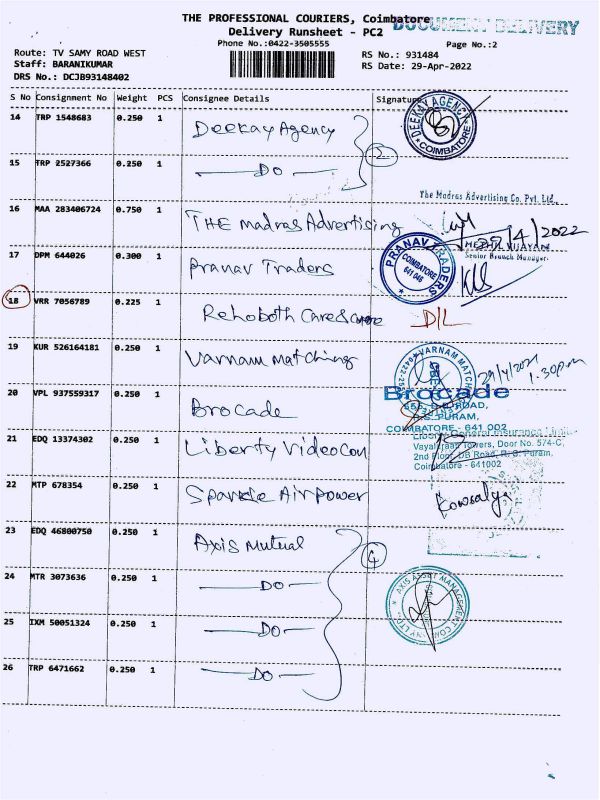 THE PROFESSIONAL COURIERS, Coimbatore
DOCUMENT DELIVERY
Delivery Runsheet - PC2
Phone No.:0422-3505555
Page No.:2
Route: TV SAMY ROAD WEST
RS No.: 931484
Staff: BARANIKUMAR
RS Date: 29-Apr-2022
DRS No.: DCJB93148402
S No Consignment No Weight PCS Consignee Details Signature
14 TRP 1548683 0.250 1 Deekay Agency
DEEKAY AGENCY
COIMBATORE
2
15 TRP 2527366 0.250 1 DO
The Madras Advertising Co. Pvt. Ltd.,
16 MAA 283406724 0.750 1 THE Madras Advertising
/4/2022
VIJAYAN
Senior Branch Manager.
17 DPM 644026 0.300 1 Pranav Traders
PRANAV TRADERS
COIMBATORE
641 046
18 VRR 7056789 0.225 1 Rehoboth Care D/L
19 KUR 526164181 0.250 1 Varnam Matching
VARNAM MATCH
1.30pm
20 VPL 937559317 0.250 1 Brocade
Brocade
ROAD,
PURAM,
COIMBATORE - 641 002
21 EDQ 13374302 0.250 1 Liberty Videocon
General Insurance
Towers, Door No. 574-C,
2nd Floor, DB Road, R. S. Puram,
Coimbatore - 641002
22 MTP 678354 0.250 1 Sparkle Airpower
Kowsalya
23 EDQ 46800750 0.250 1 Axis Mutual
4
24 MTR 3073636 0.250 1 DO
AXIS ASSET MANAGEMENT COMPANY LTD
25 IXM 50051324 0.250 1 DO
26 TRP 6471662 0.250 1 DO